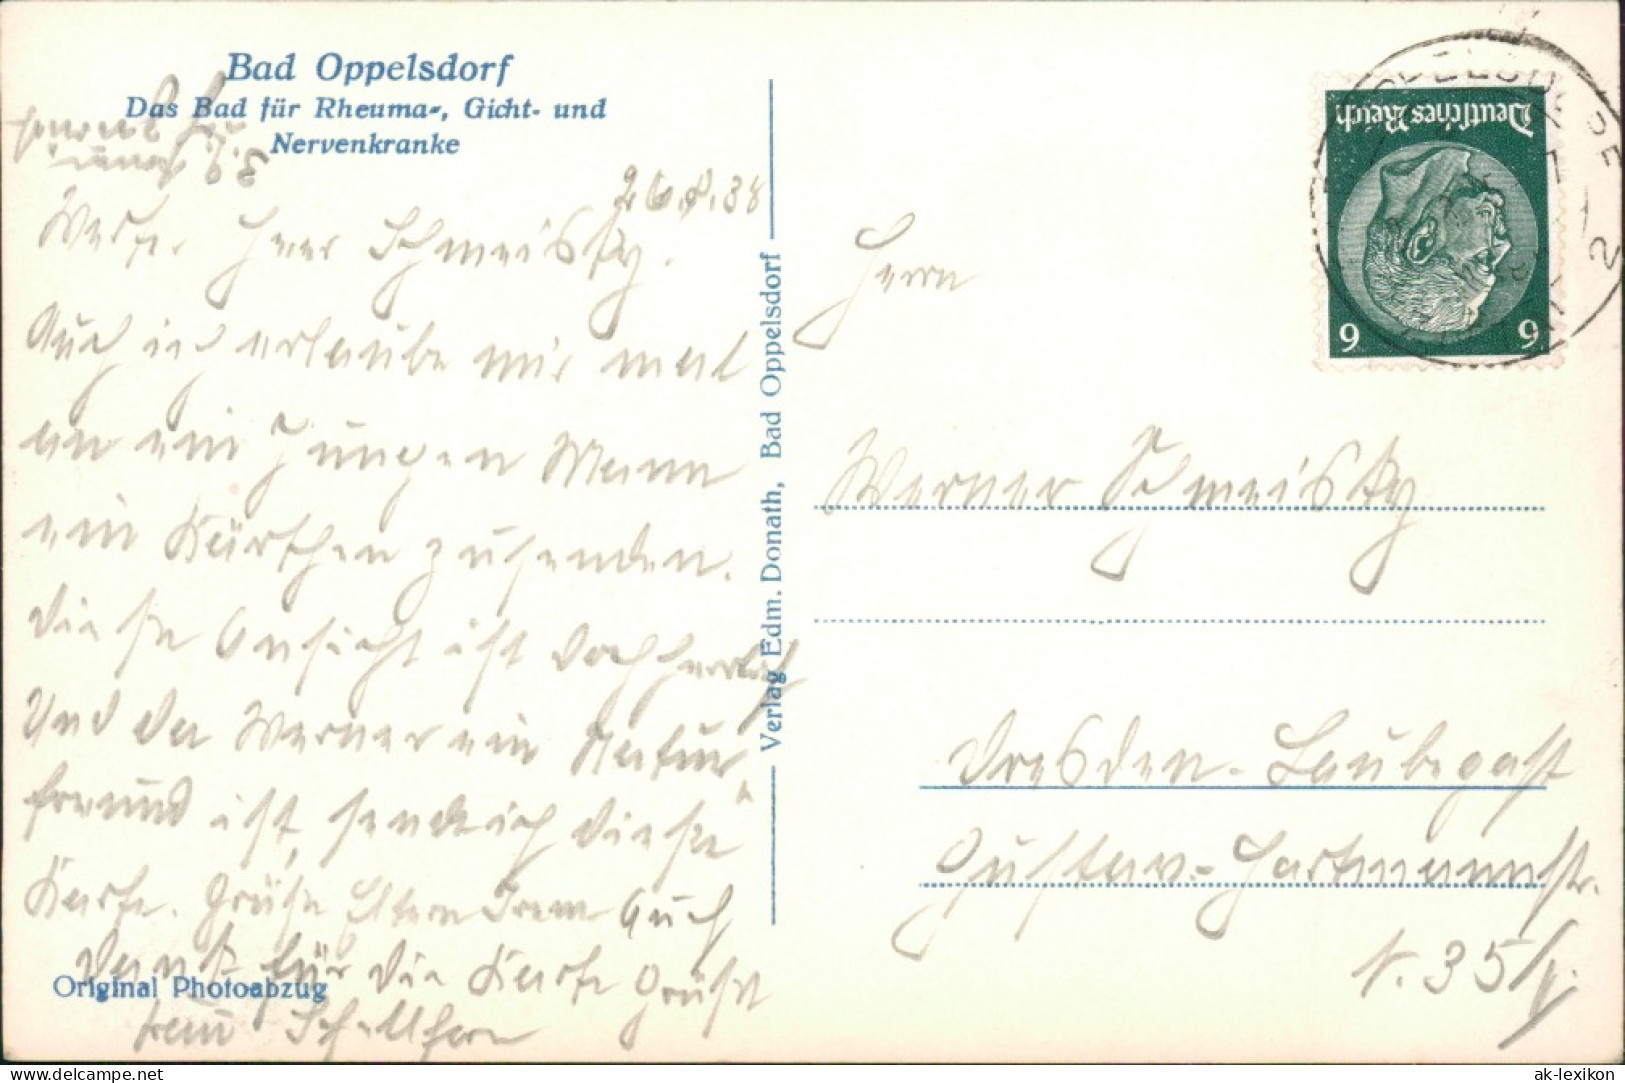 Bad Oppelsdorf
Das Bad für Rheuma-, Gicht- und
Nervenkranke
26.8.38
Werter Herr Schmeisky.
Auch ich erlaube mir mal
an ein Jungen Mann
ein Kärtchen zusenden.
Diese Ansicht ist doch herrlich
Und da Werner ein Natur
freund ist, sende ich diese
Karte. Grüße Eltern Auch
Dank für die Karte Grüßt
Original Photoabzug
Verlag Edm. Donath, Bad Oppelsdorf
Deutsches Reich
6 6
Herrn
Werner Schmeisky
Dresden-Laubegast
Gustav-Hartmannstr.
N. 35/I.